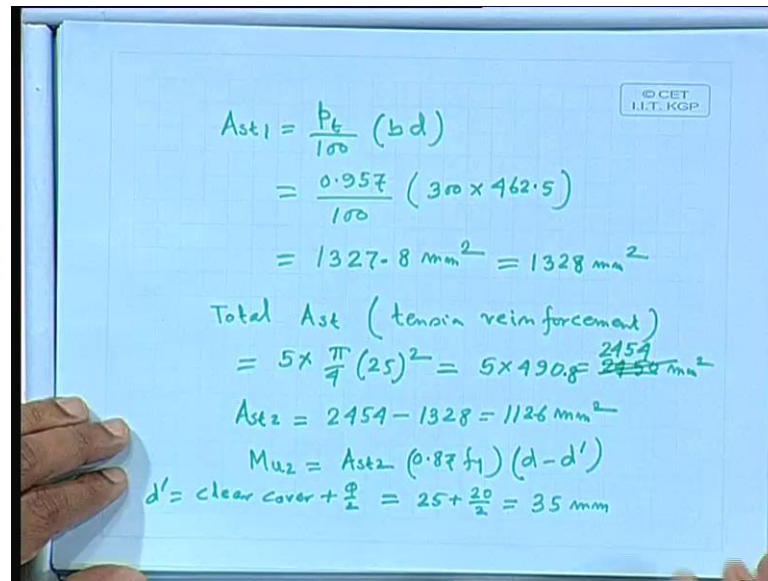 © CET
I.I.T. KGP
Ast1 = pt/100 (bd)
= 0.957/100 (300 × 462.5)
= 1327.8 mm² = 1328 mm²
Total Ast (tension reinforcement)
= 5 × π/4 (25)² = 5 × 490.8 = 2454 mm²
Ast2 = 2454 - 1328 = 1126 mm²
Mu2 = Ast2 (0.87 fy) (d - d')
d' = clear cover + φ/2 = 25 + 20/2 = 35 mm